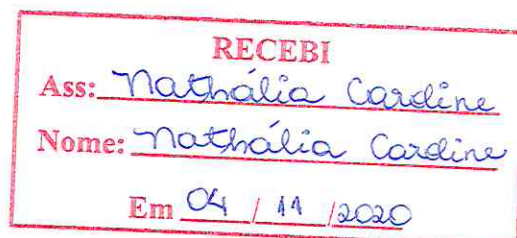 RECEBI
Ass: Nathália Cardine
Nome: Nathália Cardine
Em 04 / 11 / 2020